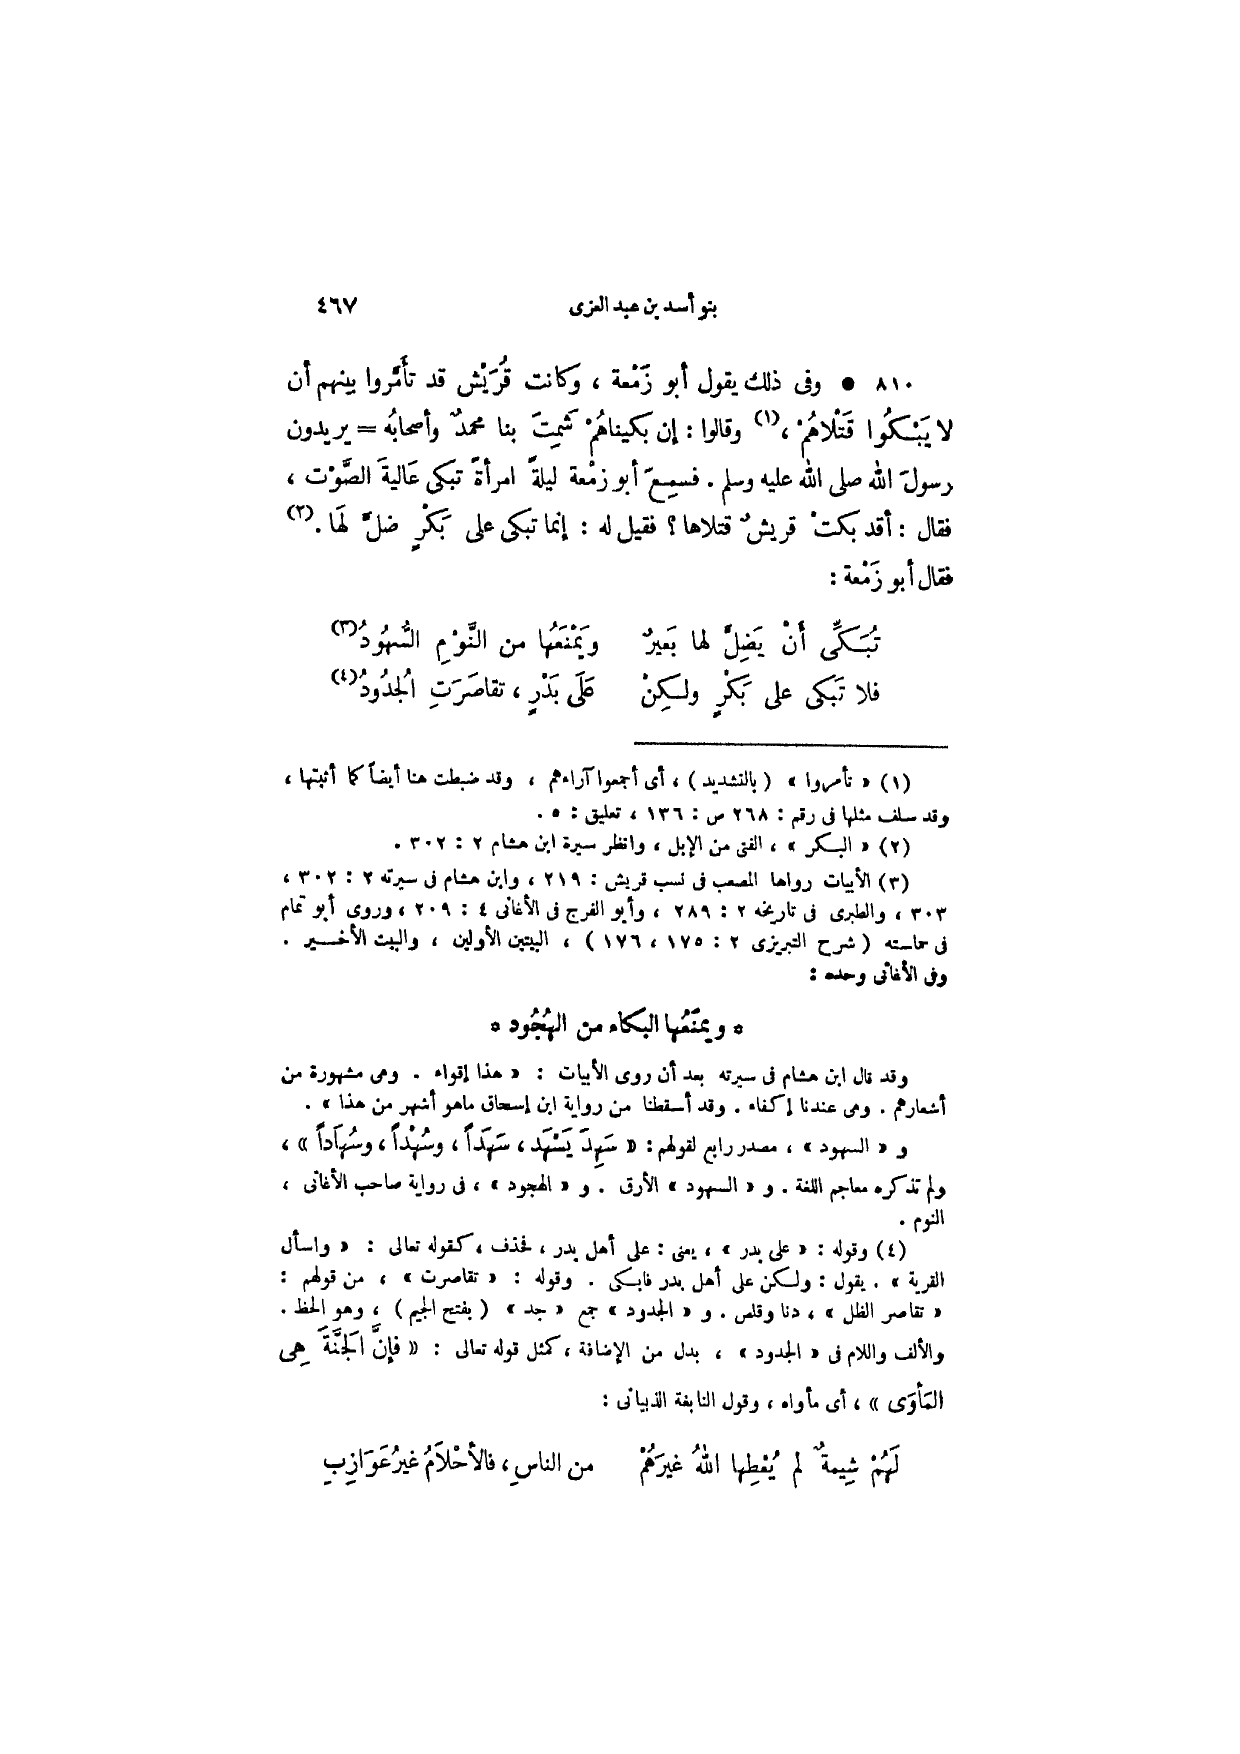 بنو أسد بن عبد العزى ٤٦٧
٨١٠ ● وفى ذلك يقول أبو زَمْعة ، وكانت قُرَيْش قد تأَمَّروا بينهم أن
لا يَبْكُوا قَتْلاهُمْ ،(١) وقالوا : إن بكيناهُمْ شَمِتَ بنا محمدٌ وأصحابُه = يريدون
رسولَ الله صلى الله عليه وسلم . فسمِعَ أبو زمْعة ليلةً امرأةً تبكى عَاليةَ الصَّوْت ،
فقال : أقد بكتْ قريشٌ قتلاها ؟ فقيل له : إنما تبكى على بَكْرٍ ضلَّ لهَا .(٢)
فقال أبو زَمْعة :
تُبَكِّى أَنْ يَضِلَّ لها بَعيرٌ ويَمْنَعُها من النَّوْمِ السُّهُودُ(٣)
فلا تَبكى على بَكْرٍ ولكِنْ عَلَى بَدْرٍ ، تقاصَرَتِ الجُدُودُ(٤)
(١) « تأمروا » ( بالتشديد ) ، أى أجمعوا آراءهم ، وقد ضبطت هنا أيضاً كما أثبتها ،
وقد سلف مثلها فى رقم : ٢٦٨ ص : ١٣٦ ، تعليق : ٥ .
(٢) « البكر » ، الفتى من الإبل ، وانظر سيرة ابن هشام ٢ : ٣٠٢ .
(٣) الأبيات رواها المصعب فى نسب قريش : ٢١٩ ، وابن هشام فى سيرته ٢ : ٣٠٢ ،
٣٠٣ ، والطبرى فى تاريخه ٢ : ٢٨٩ ، وأبو الفرج فى الأغانى ٤ : ٢٠٩ ، وروى أبو تمام
فى حماسته ( شرح التبريزى ٢ : ١٧٥ ، ١٧٦ ) ، البيتين الأولين ، والبيت الأخير .
وفى الأغانى وحده :
* ويمنَعُها البكاء من الهُجُود *
وقد قال ابن هشام فى سيرته بعد أن روى الأبيات : « هذا إقواء . وهى مشهورة من
أشعارهم . وهى عندنا إكفاء . وقد أسقطنا من رواية ابن إسحاق ماهو أشهر من هذا » .
و « السهود » ، مصدر رابع لقولهم : « سَهِدَ يَسْهَد ، سَهَداً ، وسُهْداً ، وسُهَاداً » ،
ولم تذكره معاجم اللغة . و « السهود » الأرق . و « الهجود » ، فى رواية صاحب الأغانى ،
النوم .
(٤) وقوله : « على بدر » ، يعنى : على أهل بدر ، فحذف ، كقوله تعالى : « واسأل
القرية » . يقول : ولكن على أهل بدر فابكى . وقوله : « تقاصرت » ، من قولهم :
« تقاصر الظل » ، دنا وقلص . و « الجدود » جمع « جد » ( بفتح الجيم ) ، وهو الحظ .
والألف واللام فى « الجدود » ، بدل من الإضافة ، كمثل قوله تعالى : « فَإِنَّ الجَنَّةَ هِى
المَأْوَى » ، أى مأواه ، وقول النابغة الذبيانى :
لَهُمْ شِيمةٌ لم يُعْطِها اللهُ غيرَهُمْ من الناسِ ، فالأحْلاَمُ غيرُ عَوَازِبِ